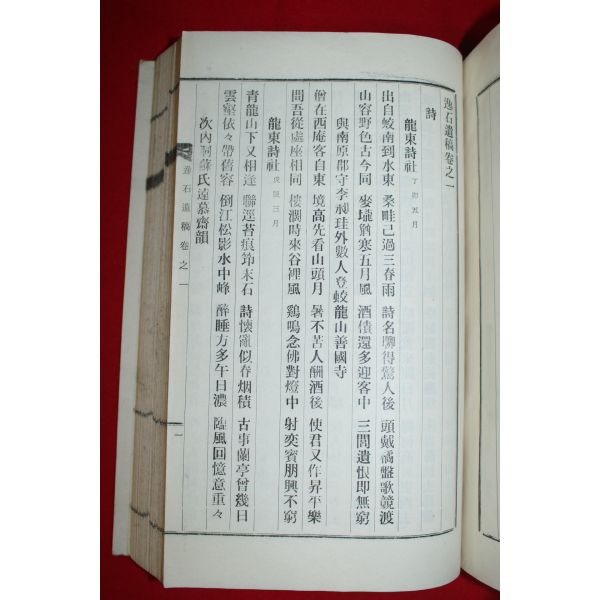 逸石遺稿卷之一
詩
龍東詩社 丁卯五月
出自蛟南到水東 桑畦已過三春雨 詩名聊得驚人後 頭戴橘盤歌競渡
山容野色古今同 麥壠猶寒五月風 酒債還多迎客中 三閭遺恨即無窮
與南原郡守李昶珪外數人登蛟龍山善國寺
僧在西庵客自東 境高先看山頭月 暑不苦人酬酒後 使君又作昇平樂
問吾從處座相同 樓濶時來谷裡風 鷄鳴念佛對燈中 射奕賓朋興不窮
龍東詩社 戊辰三月
青龍山下又相逢 聯逕苔痕筇末石 詩懷亂似春烟積 古事蘭亭曾幾日
雲壑依々帶舊容 倒江松影水中峰 醉睡方多午日濃 臨風回憶意重々
次內洞蘇氏遠慕齋韻
逸石遺稿 卷之一
一